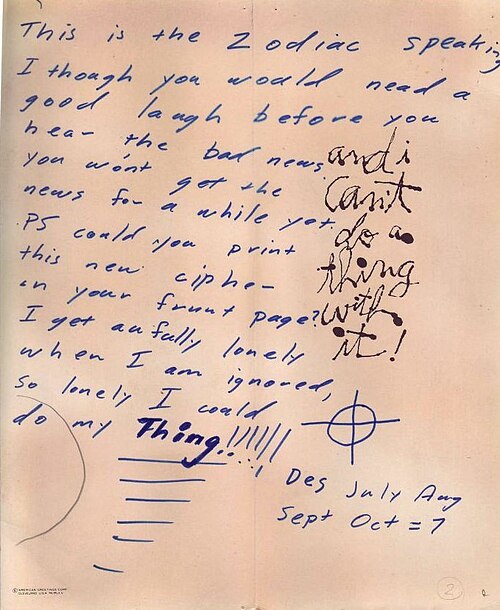 This is the Zodiac speaking
I though you would nead a
good laugh before you
hear the bad news
you won't get the
news for a while yet
PS could you print
this new cipher
in your frunt page?
I get aufully lonely
when I am ignored,
so lonely I could
do my Thing!!!!!!
and i
can't
do a
thing
with
it!
Des July Aug
Sept Oct = 7
2